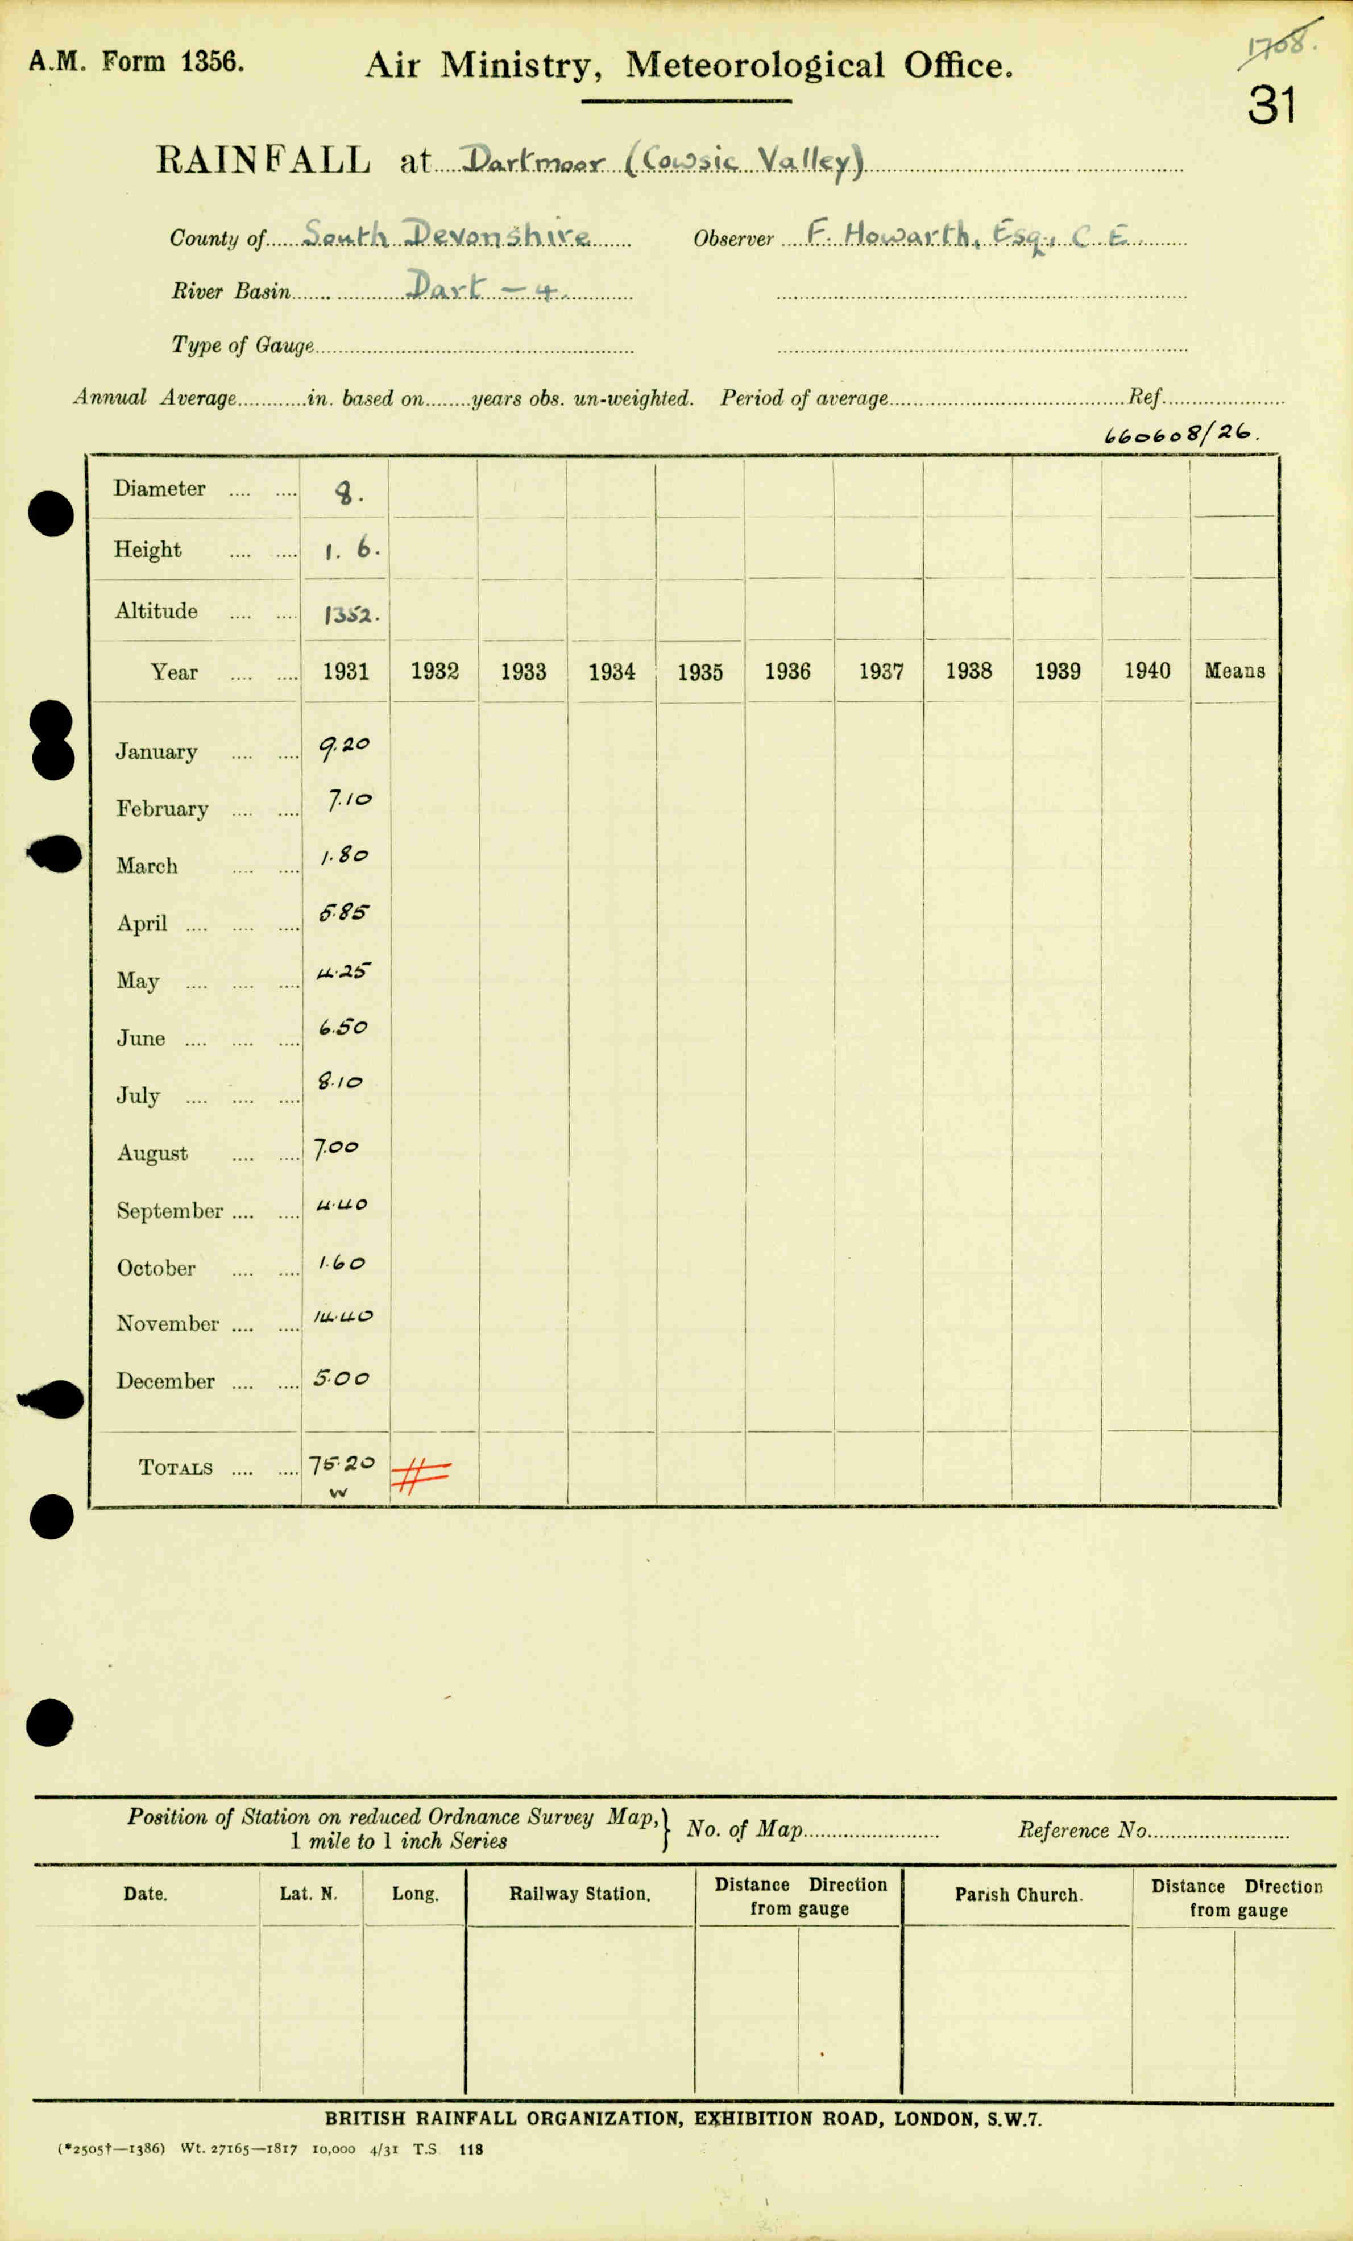 1708.
A.M. Form 1356. Air Ministry, Meteorological Office.
31
RAINFALL at Dartmoor (Cowsic Valley)
County of South Devonshire Observer F. Howarth, Esq., C.E.
River Basin Dart - 4.
Type of Gauge
Annual Average in. based on years obs. un-weighted. Period of average Ref.
660608/26.
Diameter 8.
Height 1. 6.
Altitude 1352.
Year 1931 1932 1933 1934 1935 1936 1937 1938 1939 1940 Means
January 9.20
February 7.10
March 1.80
April 5.85
May 4.25
June 6.50
July 8.10
August 7.00
September 4.40
October 1.60
November 14.40
December 5.00
TOTALS 75.20
w
Position of Station on reduced Ordnance Survey Map, } No. of Map Reference No.
1 mile to 1 inch Series
Date. Lat. N. Long. Railway Station. Distance Direction from gauge Parish Church. Distance Direction from gauge
BRITISH RAINFALL ORGANIZATION, EXHIBITION ROAD, LONDON, S.W.7.
(*2505†—1386) Wt. 27165—1817 10,000 4/31 T.S. 118